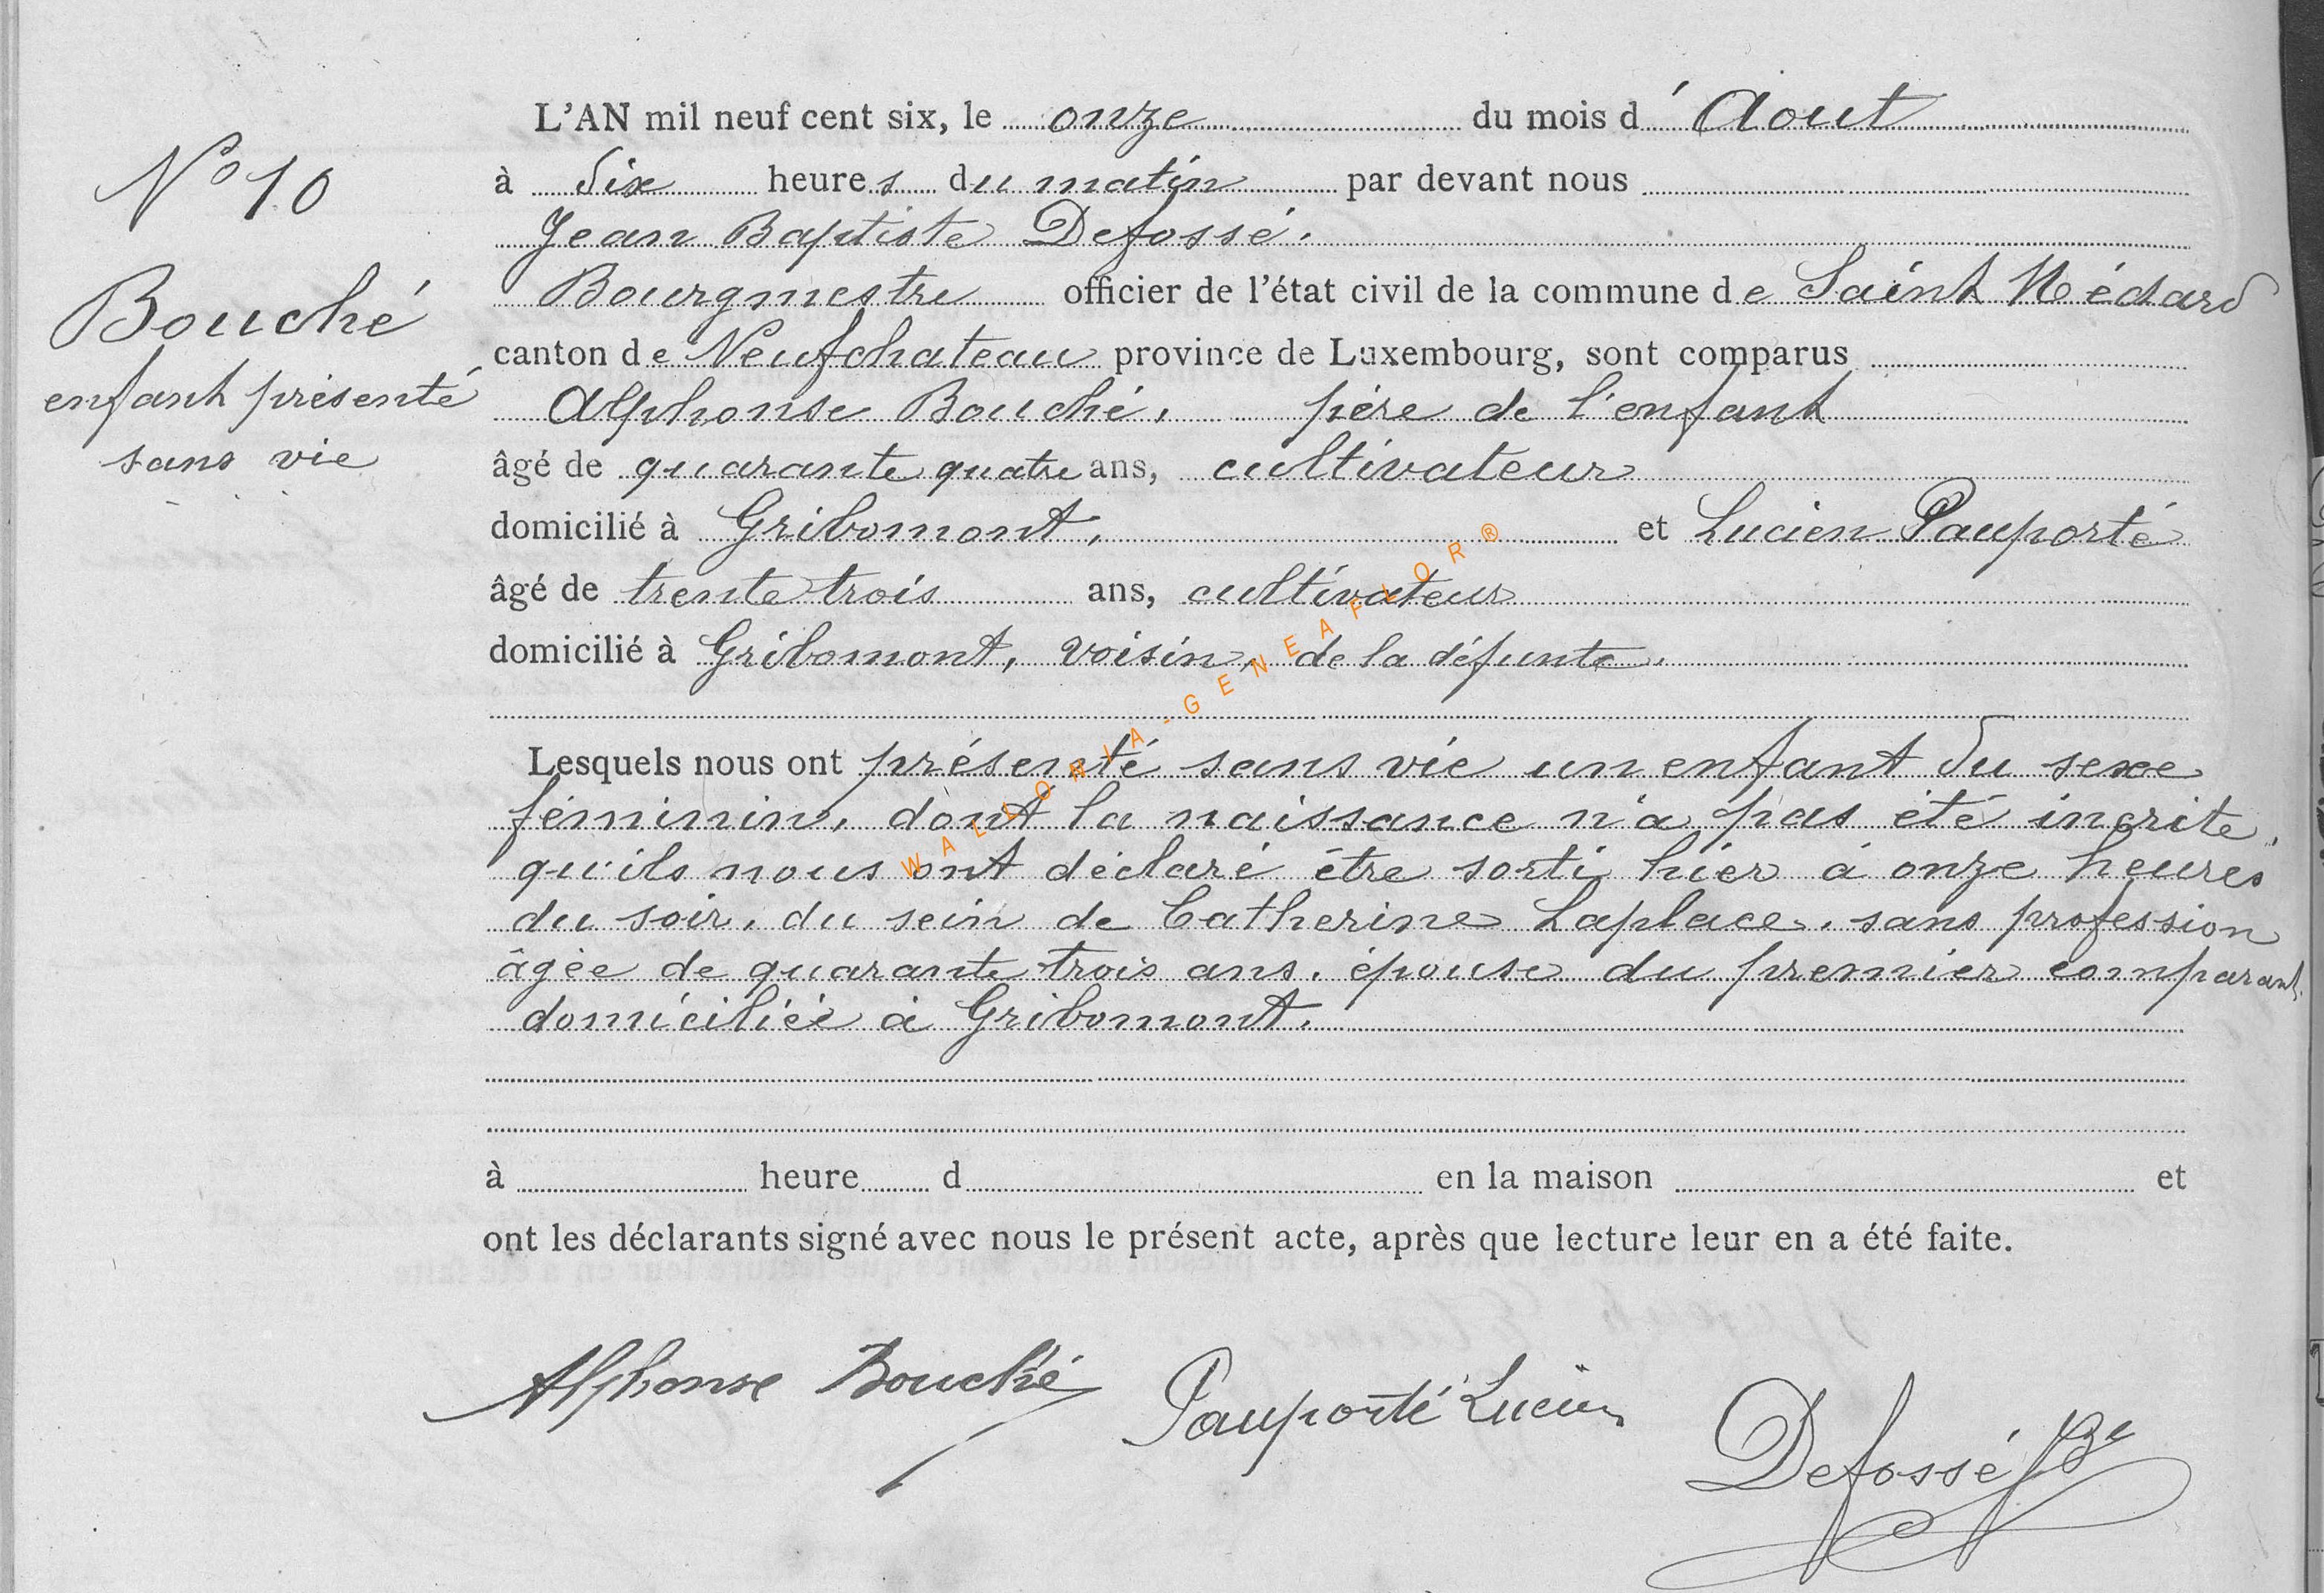 N° 10
Bouché
enfant présenté
sans vie
L'AN mil neuf cent six, le onze du mois d' Aout
à dix heures du matin par devant nous
Jean Baptiste Defossé.
Bourgmestre officier de l'état civil de la commune de Saint Médard
canton de Neufchateau province de Luxembourg, sont comparus
Alphonse Bouché, père de l'enfant
âgé de quarante quatre ans, cultivateur
domicilié à Gribomont, et Lucien Pauporté
âgé de trente trois ans, cultivateur
domicilié à Gribomont, voisin, de la défunte.
Lesquels nous ont présenté sans vie un enfant du sexe
féminin, dont la naissance n'a pas été incrite,
qu'ils nous ont déclaré être sorti hier à onze heures
du soir, du sein de Catherine Laplace, sans profession
âgée de quarante trois ans, épouse du premier comparant,
domiciliée à Gribomont.
à heure d en la maison et
ont les déclarants signé avec nous le présent acte, après que lecture leur en a été faite.
Alphonse Bouché Pauporté Lucien Defossé JBe
WALLONIA-GENEAFLOR®